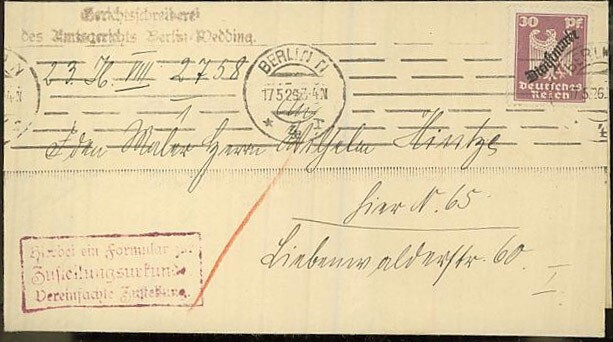 Gerichtsschreiberei
des Amtsgerichts Berlin-Wedding.
23. H. VIII 2758
30 Pf
Dienstmarke
Deutsches Reich
BERLIN N
17.5.26. 3-4N
An den Maler Herrn Wilhelm Hintze
hier N. 65
Liebenwalderstr. 60.
I
Hierbei ein Formular zur
Zustellungsurkunde
Vereinfachte Zustellung.